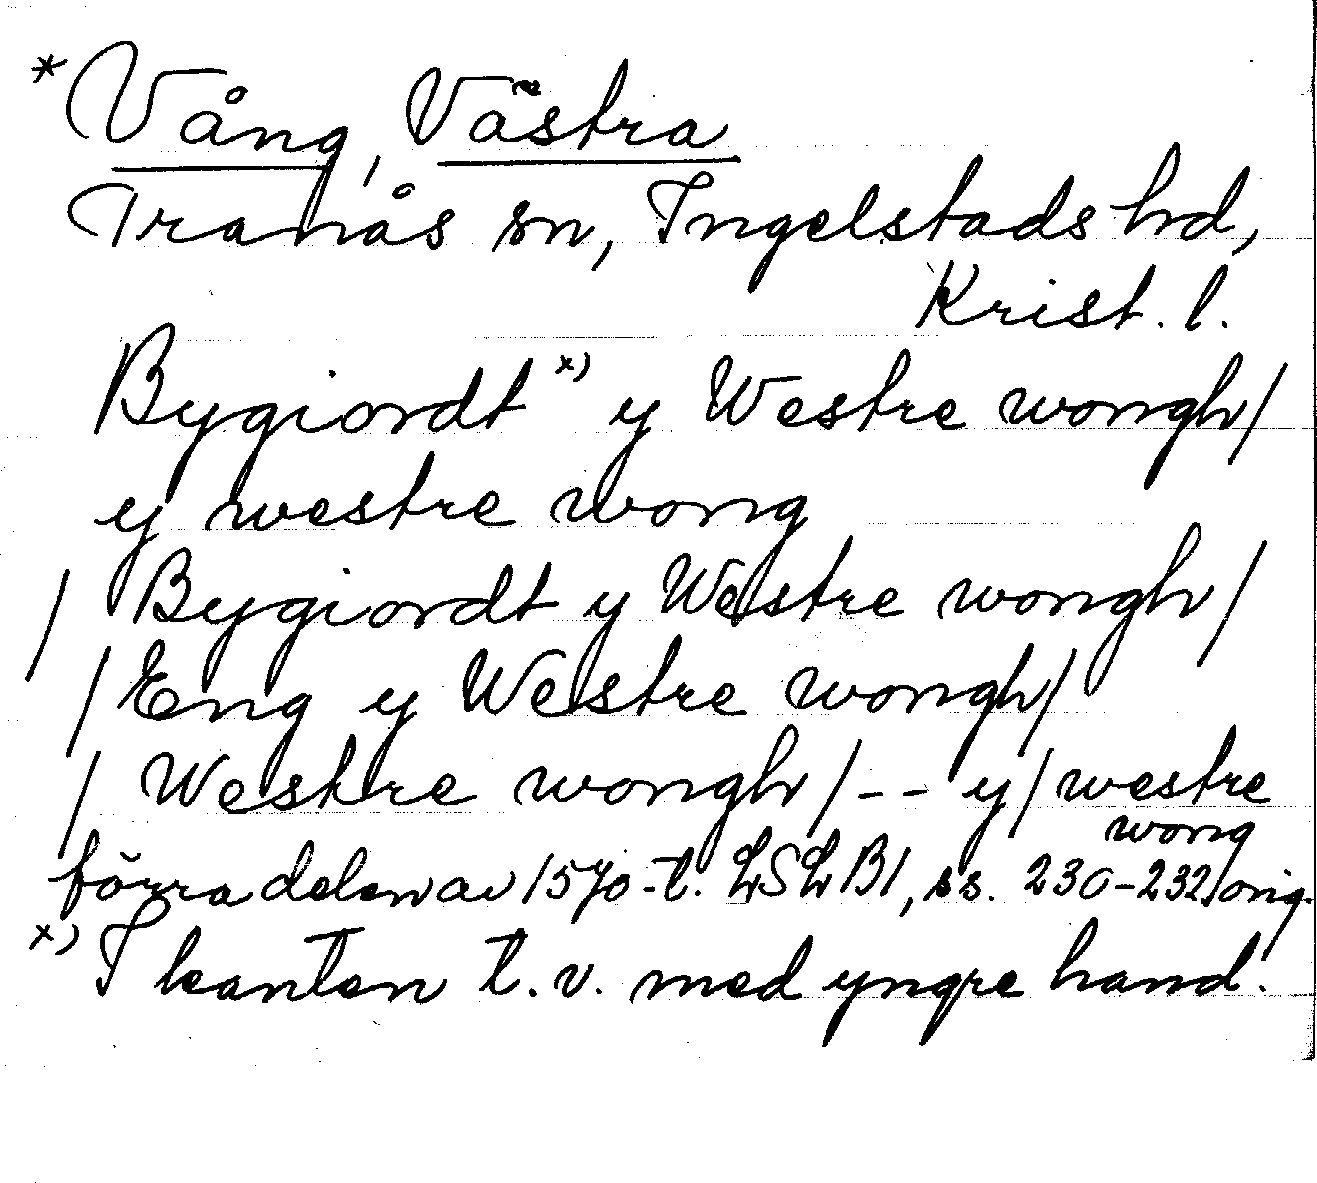 *Vång, Västra
Tranås sn, Ingelstads hd,
Krist. l.
Bygiordt x) y Westre wongh/
y westre wong
/ Bygiordt y Westre wongh/
/Eng y Westre wongh/
/ Westre wongh/-- y/westre
wong
förra delen av 1570-t. LSLB1, ss. 230-232, orig.
x) I kanten t.v. med yngre hand.